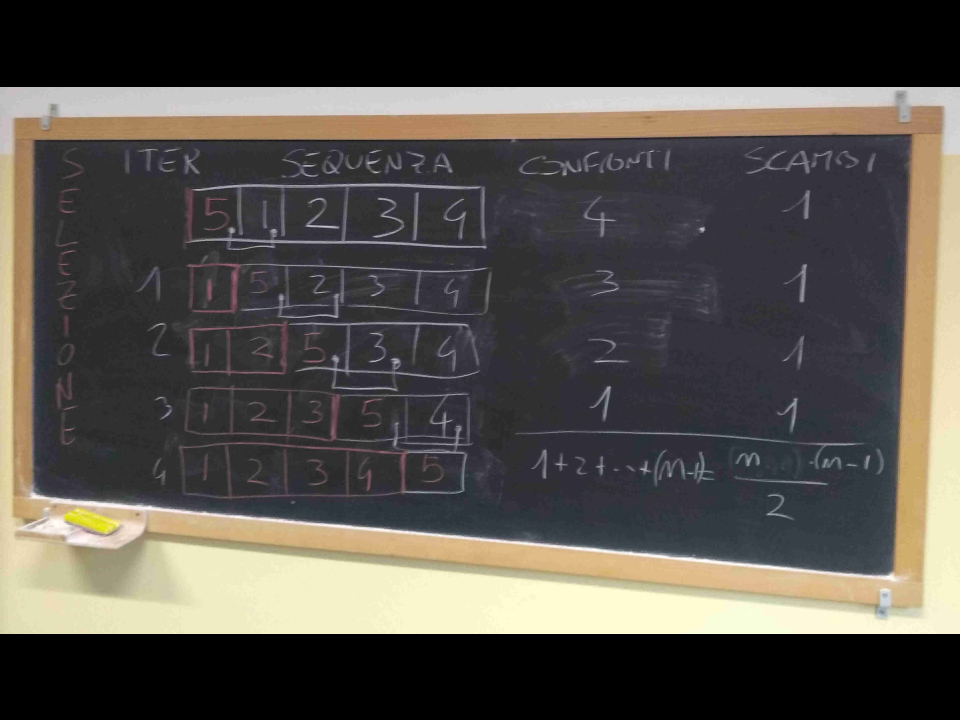 SELEZIONE
ITER SEQUENZA CONFRONTI SCAMBI
5 1 2 3 4 4 1
1 1 5 2 3 4 3 1
2 1 2 5 3 4 2 1
3 1 2 3 5 4 1 1
4 1 2 3 4 5 1+2+...+(n-1)= n·(n-1)
2